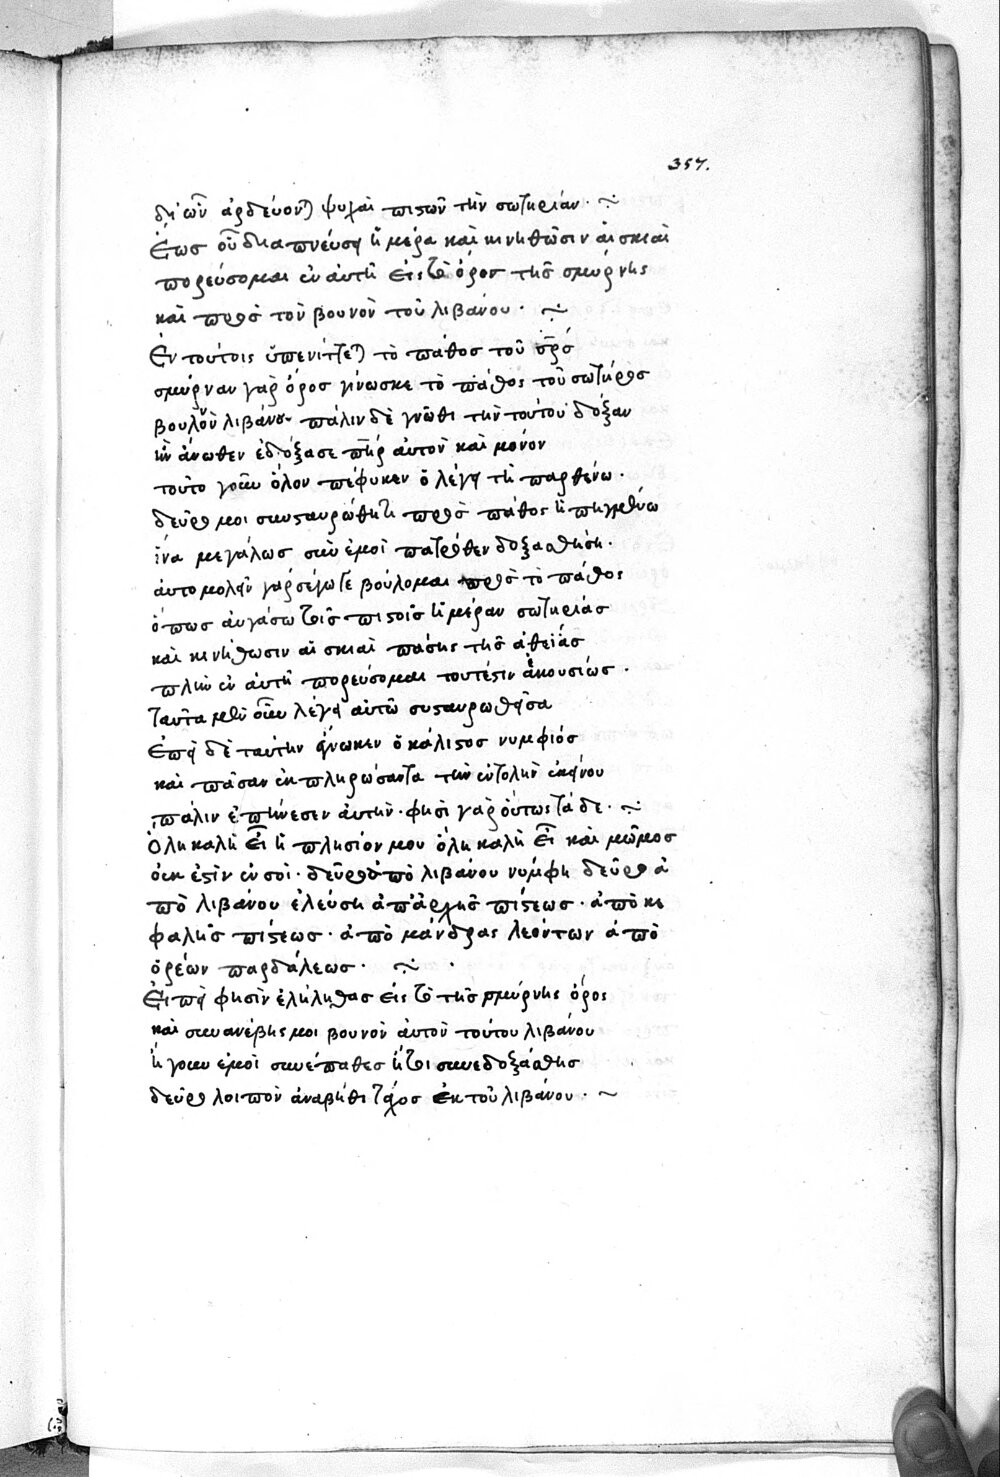 357.
δι' ὧν ἀρδεύονται ψυχαὶ πιστῶν τὴν σωτηρίαν·
Ἕως οὗ διαπνεύση ἡ μέρα καὶ κινηθῶσιν αἱ σκιαὶ
πορεύσομαι ἐν αὐτῆ εἰς τὸ ὄρος τῆς σμύρνης
καὶ πρὸς τὸν βουνὸν τοῦ λιβάνου·
Ἐν τούτοις ὑπενίττεται τὸ πάθος τοῦ σρσ
σμύρναν γὰρ ὄρος γίνωσκε τὸ πάθος τοῦ σωτῆρος
βουνὸν λιβάνου πάλιν δὲ γνῶθι τὴν τούτου δόξαν
ἣν ἄνωθεν ἐδόξασε πηρ αὐτὸν καὶ μόνον
τοῦτο γοῦν ὅλον πέφυκεν ὃ λέγει τῆ παρθένω·
δεῦρό μοι συσταυρώθητι πρὸς πάθος
ἵνα μεγάλως σὺν ἐμοὶ πατρόθεν δοξασθήση·
αὐτομολεῖν γὰρ ἔγωγε βούλομαι πρὸς τὸ πάθος
ὅπως αὐγάσω τοῖς πιστοῖς ἡμέραν σωτηρίας
καὶ κινήθωσιν αἱ σκιαὶ πάσης τῆς ἀθεΐας
πλὴν ἐν αὐτῆ πορεύσομαι τουτέστιν ἑκουσίως·
Ταῦτα μὲν οὖν λέγει αὐτῶ συσταυρωθεῖσα
Ἐπεὶ δὲ ταύτην ἔγνωκεν ὁ κάλιστος νυμφίος
καὶ πᾶσαν ἐκπληρώσαντα τὴν ἐντολὴν ἐκείνου
πάλιν ἐπήνεσεν αὐτὴν· φησὶ γὰρ οὕτως τάδε·
Ὅλη καλὴ εἶ ἡ πλησίον μου ὅλη καλὴ εἶ καὶ μῶμος
οὐκ ἔστιν ἐν σοὶ· δεῦρο ἀπὸ λιβάνου νύμφη δεῦρο ἀ
πὸ λιβάνου ἐλεύση ἀπ' ἀρχῆς πίστεως· ἀπὸ κε
φαλῆς πίστεως· ἀπὸ μάνδρας λεόντων ἀπὸ
ὀρέων παρδάλεως·
Εἰπεῖ φησὶν ἐλήληθας εἰς τὸ τῆς σμύρνης ὄρος
καὶ συνανέβης μοι βουνὸν αὐτὸν τούτου λιβάνου
ἤγουν ἐμοὶ συνέπαθες ἤτοι συνεδοξάσθης
δεῦρο λοιπὸν ἀναβήθι ἐκ τοῦ λιβάνου·